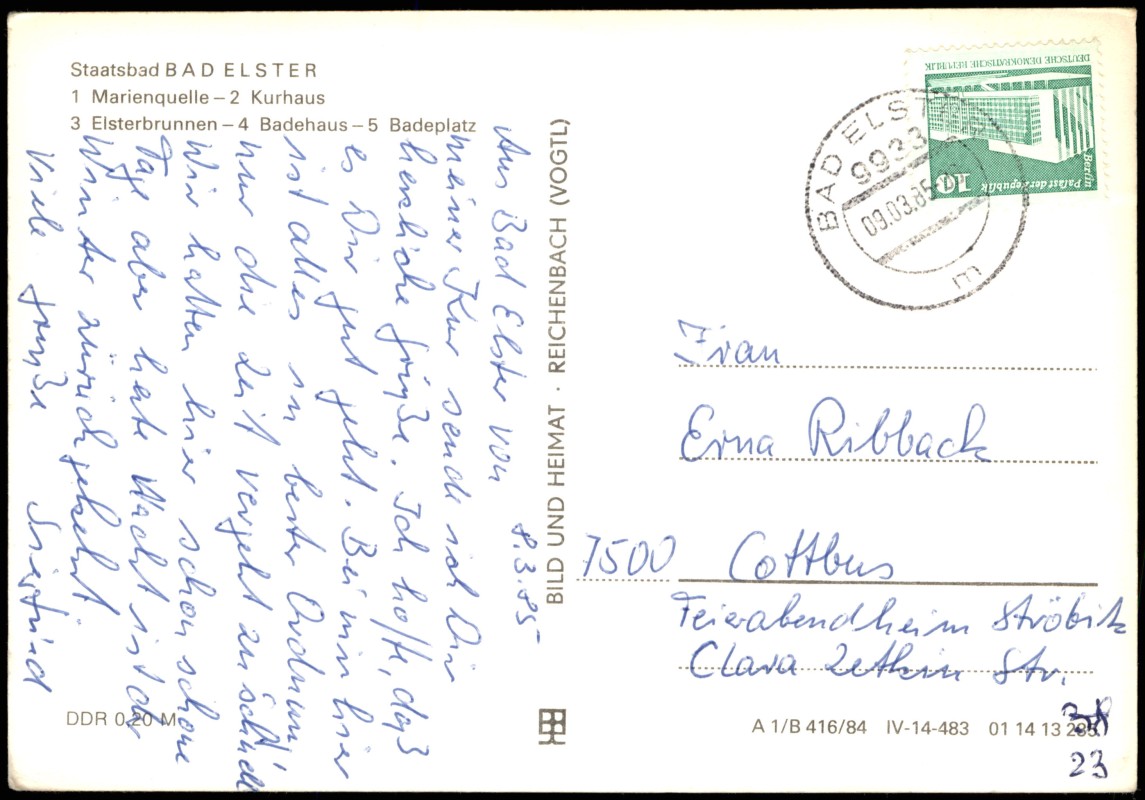 Staatsbad BAD ELSTER
1 Marienquelle – 2 Kurhaus
3 Elsterbrunnen – 4 Badehaus – 5 Badeplatz
8.3.85
Aus Bad Elster von
meiner Kur sende ich Dir
herzliche Grüße. Ich hoffe, daß
es Dir gut geht. Bei mir hier
ist alles in bester Ordnung
nur die Zeit vergeht zu schnell
Wir hatten hier schon schöne
Tage aber heute Nacht ist der
Winter zurück gekehrt
Viele Grüße Siegfried
DDR 0,20 M
BILD UND HEIMAT · REICHENBACH (VOGTL)
DEUTSCHE DEMOKRATISCHE REPUBLIK
10
Palast der Republik
Berlin
BAD ELSTER
9933
09.03.85
m
Frau
Erna Ribback
7500 Cottbus
Feierabendheim Ströbitz
Clara Zetkin Str.
23
A 1/B 416/84 IV-14-483 01 14 13